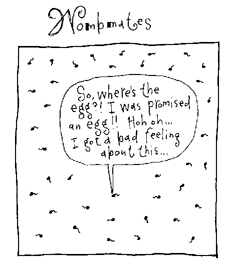 Wombmates
So, where's the
egg?! I was promised
an egg!! Hoh oh...
I got a bad feeling
about this...